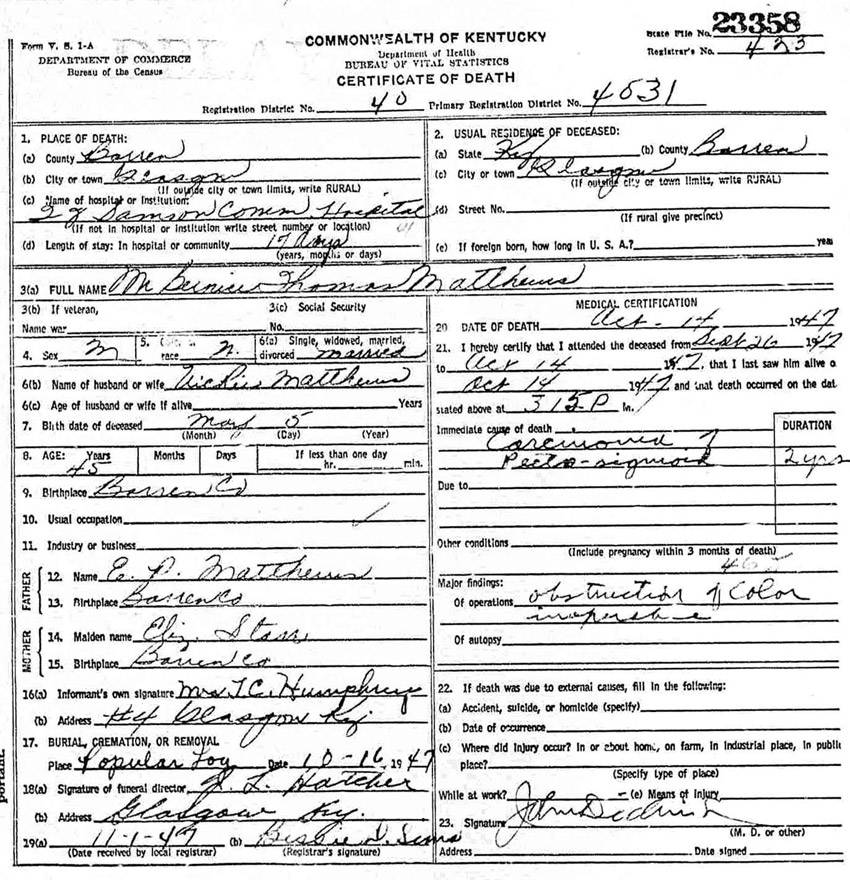 Form V. S. 1-A
DEPARTMENT OF COMMERCE
Bureau of the Census
COMMONWEALTH OF KENTUCKY
Department of Health
BUREAU OF VITAL STATISTICS
CERTIFICATE OF DEATH
State File No. 23358
Registrar's No. 423
Registration District No. 40 Primary Registration District No. 4531
1. PLACE OF DEATH:
(a) County Barren
(b) City or town Glasgow
(If outside city or town limits, write RURAL)
(c) Name of hospital or Institution:
T J Samson Comm. Hospital
(If not in hospital or institution write street number or location)
(d) Length of stay: In hospital or community 17 days
(years, months or days)
2. USUAL RESIDENCE OF DECEASED:
(a) State Ky (b) County Barren
(c) City or town Glasgow
(If outside city or town limits, write RURAL)
(d) Street No.
(If rural give precinct)
(e) If foreign born, how long in U. S. A.? yea
3(a) FULL NAME Thomas Matthews
3(b) If veteran,
Name war
3(c) Social Security
No.
4. Sex M
5. race
6(a) Single, widowed, married,
divorced married
6(b) Name of husband or wife Matthews
6(c) Age of husband or wife if alive Years
7. Birth date of deceased May 5
(Month) (Day) (Year)
8. AGE: Years Months Days If less than one day
45 hr. min.
9. Birthplace Barren Co
10. Usual occupation
11. Industry or business
FATHER
12. Name E. P. Matthews
13. Birthplace Barren Co
MOTHER
14. Maiden name Eliz.
15. Birthplace Barren Co
16(a) Informant's own signature Mrs T.C. Humphrey
(b) Address #4 Glasgow Ky
17. BURIAL, CREMATION, OR REMOVAL
Place Popular Log Date 10-16, 1947
18(a) Signature of funeral director J. L. Hatcher
(b) Address Glasgow Ky.
19(a) 11-1-47 (b) Sims
(Date received by local registrar) (Registrar's signature)
MEDICAL CERTIFICATION
20 DATE OF DEATH Oct - 14 1947
21. I hereby certify that I attended the deceased from Sept 26 1947
to Oct 14 1947, that I last saw him alive o
Oct 14 1947 and that death occurred on the dat
stated above at 315 P m.
Immediate cause of death
DURATION
Carcinoma of
Recto-sigmoid 2 yrs
Due to
Other conditions
(Include pregnancy within 3 months of death)
Major findings:
Of operations obstruction of Colon
inoperable
Of autopsy
22. If death was due to external causes, fill in the following:
(a) Accident, suicide, or homicide (specify)
(b) Date of occurrence
(c) Where did injury occur? In or about home, on farm, in industrial place, in public
place?
(Specify type of place)
While at work? (e) Means of injury
23. Signature
(M. D. or other)
Address Date signed
portant.